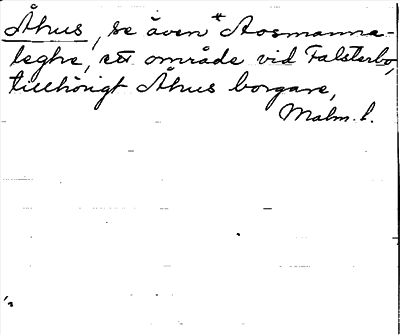 Åhus, se även *Aosmanna-
leghe, ett område vid Falsterbo,
tillhörigt Åhus borgare,
Malm. l.